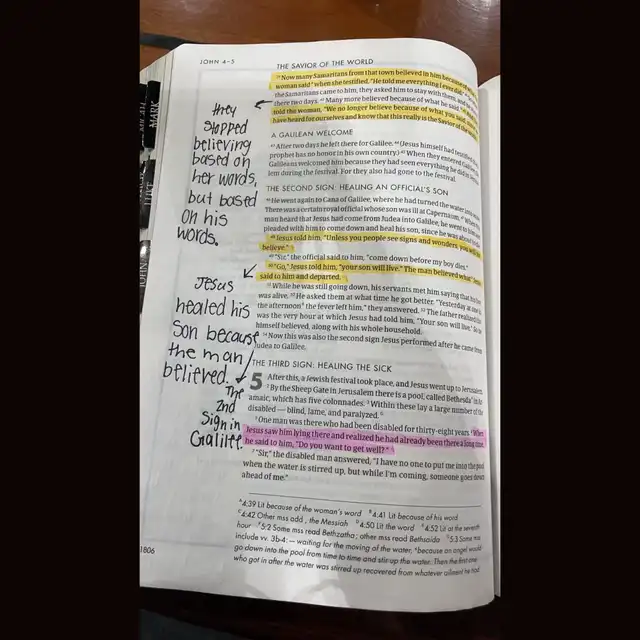 JOHN 4–5
THE SAVIOR OF THE WORLD
39 Now many Samaritans from that town believed in him because of
woman said a when she testified, "He told me everything I ever did."
the Samaritans came to him, they asked him to stay with them, and
there two days. 41 Many more believed because of what he said.
told the woman, "We no longer believe because of what you said,
have heard for ourselves and know that this really is the Savior of the
A GALILEAN WELCOME
43 After two days he left there for Galilee. 44 (Jesus himself had testified that
prophet has no honor in his own country.) 45 When they entered Galilee,
Galileans welcomed him because they had seen everything he did in
lem during the festival. For they also had gone to the festival.
THE SECOND SIGN: HEALING AN OFFICIAL'S SON
46 He went again to Cana of Galilee, where he had turned the water into
There was a certain royal official whose son was ill at Capernaum.
man heard that Jesus had come from Judea into Galilee, he went to him
pleaded with him to come down and heal his son, since he was about to
48 Jesus told him, "Unless you people see signs and wonders, you will not
believe."
49 "Sir," the official said to him, "come down before my boy dies."
50 "Go," Jesus told him, "your son will live." The man believed what
said to him and departed.
51 While he was still going down, his servants met him saying that his boy
was alive. 52 He asked them at what time he got better. "Yesterday at one in
the afternoon the fever left him," they answered. 53 The father realized this
was the very hour at which Jesus had told him, "Your son will live." So he
himself believed, along with his whole household.
54 Now this was also the second sign Jesus performed after he came from
Judea to Galilee.
THE THIRD SIGN: HEALING THE SICK
5 After this, a Jewish festival took place, and Jesus went up to Jerusalem.
2 By the Sheep Gate in Jerusalem there is a pool, called Bethesda in
amaic, which has five colonnades. 3 Within these lay a large number of the
disabled — blind, lame, and paralyzed.
5 One man was there who had been disabled for thirty-eight years. 6 When
Jesus saw him lying there and realized he had already been there a long time,
he said to him, "Do you want to get well?"
7 "Sir," the disabled man answered, "I have no one to put me into the pool
when the water is stirred up, but while I'm coming, someone goes down
ahead of me."
4:39 Lit because of the woman's word 4:41 Lit because of his word
4:42 Other mss add , the Messiah 4:50 Lit the word 4:52 Lit at the seventh
hour 5:2 Some mss read Bethzatha; other mss read Bethsaida 5:3 Some mss
include vv. 3b-4: — waiting for the moving of the water, 4 because an angel would
go down into the pool from time to time and stir up the water. Then the first one
who got in after the water was stirred up recovered from whatever ailment he had
1806
they
stopped
believing
based on
her words,
but based
on his
words.
Jesus
healed his
son because
the man
believed.
The
2nd
Sign in
Galilee.
MARK
LUKE
JOHN